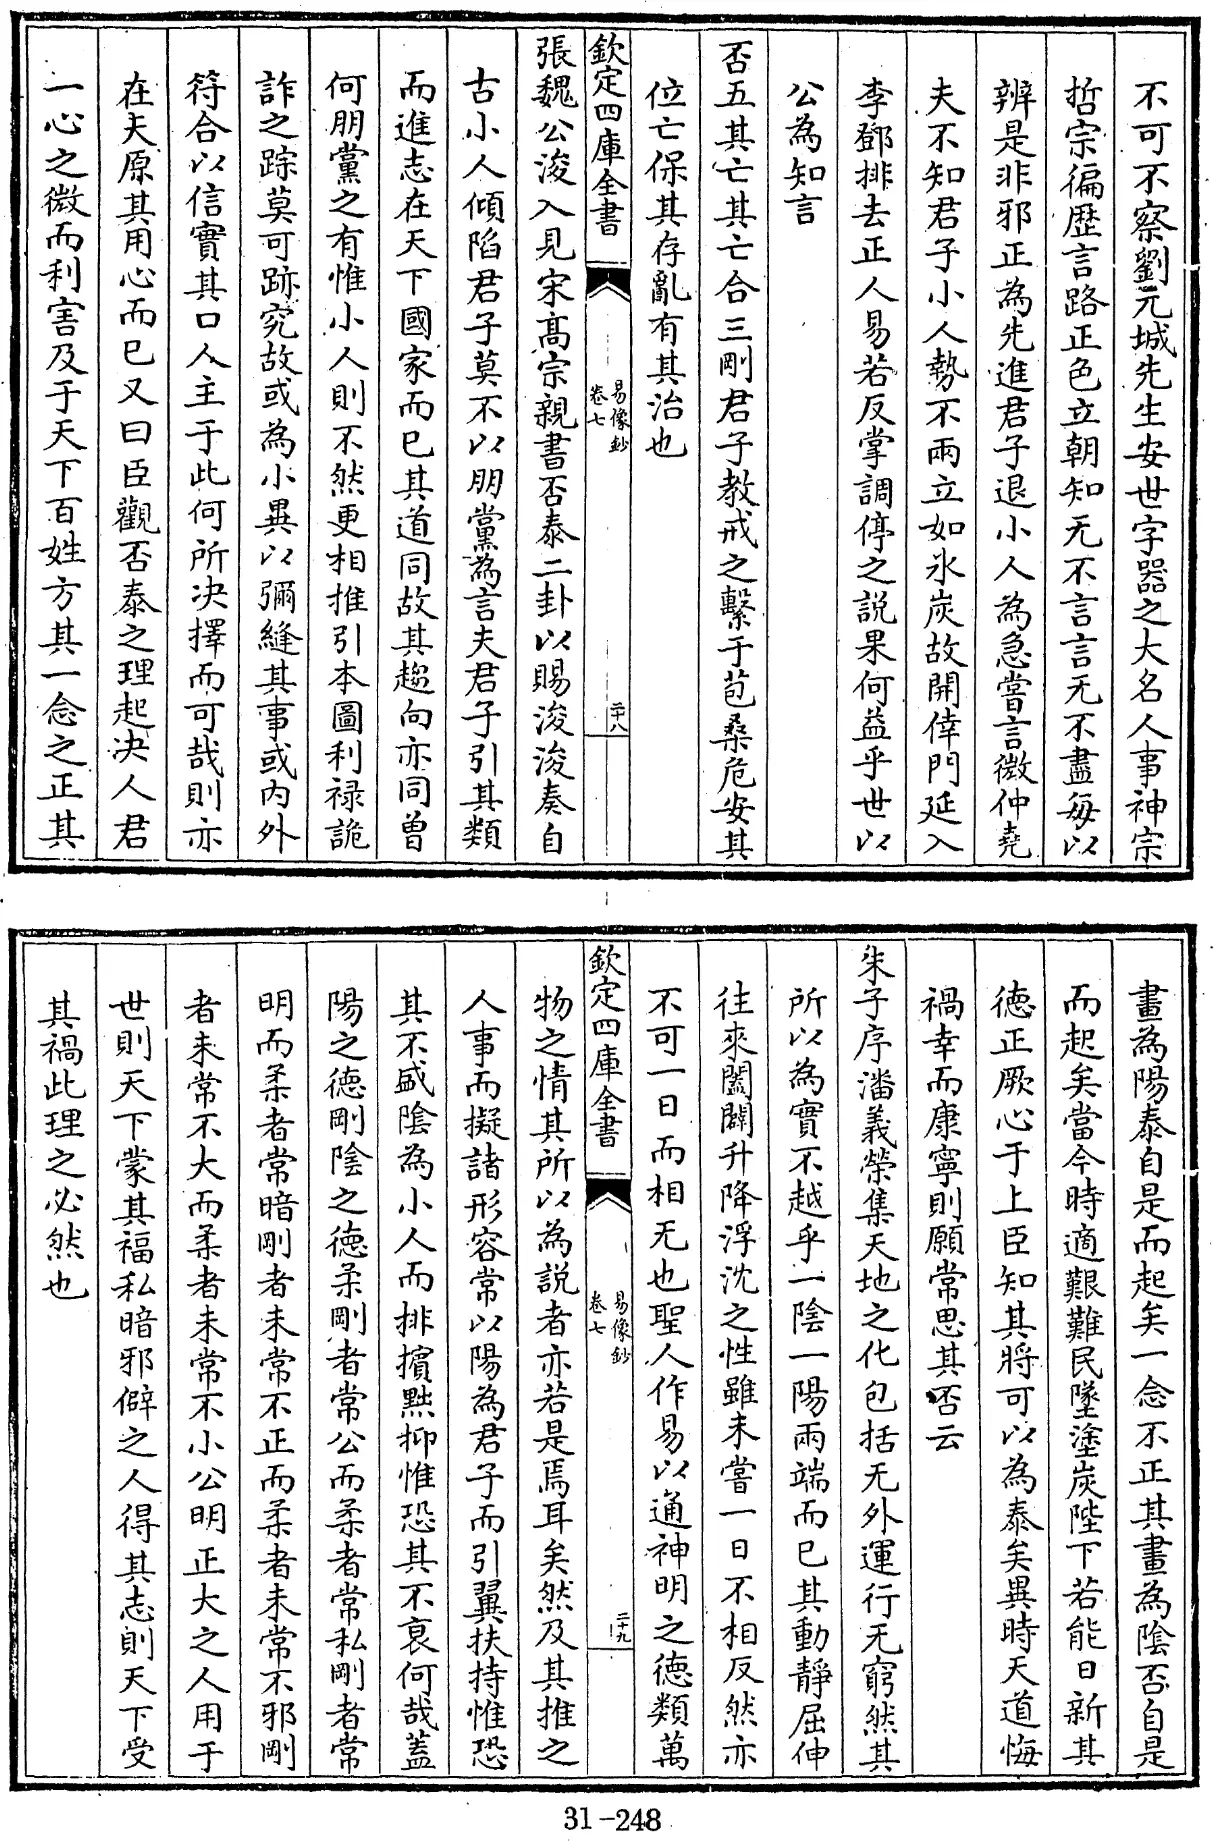 不可不察劉元城先生安世字器之大名人事神宗
哲宗徧歴言路正色立朝知无不言言无不盡每以
辨是非邪正為先進君子退小人為急嘗言微仲堯
夫不知君子小人勢不兩立如氷炭故開倖門延入
李鄧排去正人易若反掌調停之説果何益乎世以
公為知言
否五其亡其亡合三剛君子教戒之繫于苞桑危安其
位亡保其存亂有其治也
欽定四庫全書
易像鈔
卷七
二十八
張魏公浚入見宋髙宗親書否泰二卦以賜浚浚奏自
古小人傾陷君子莫不以朋黨為言夫君子引其類
而進志在天下國家而已其道同故其趨向亦同曽
何朋黨之有惟小人則不然更相推引本圖利禄詭
詐之踪莫可跡究故或為小異以彌縫其事或内外
符合以信實其口人主于此何所决擇而可哉則亦
在夫原其用心而已又曰臣觀否泰之理起决人君
一心之微而利害及于天下百姓方其一念之正其
畫為陽泰自是而起矣一念不正其畫為隂否自是
而起矣當今時適艱難民墜塗炭陛下若能日新其
德正厥心于上臣知其將可以為泰矣異時天道悔
禍幸而康寧則願常思其否云
朱子序潘義榮集天地之化包括无外運行无窮然其
所以為實不越乎一隂一陽兩端而已其動靜屈伸
往來闔闢升降浮沈之性雖未嘗一日不相反然亦
不可一日而相无也聖人作易以通神明之德類萬
欽定四庫全書
易像鈔
卷七
二十九
物之情其所以為説者亦若是焉耳矣然及其推之
人事而擬諸形容常以陽為君子而引翼扶持惟恐
其不盛隂為小人而排擯黜抑惟恐其不衰何哉葢
陽之德剛隂之德柔剛者常公而柔者常私剛者常
明而柔者常暗剛者未常不正而柔者未常不邪剛
者未常不大而柔者未常不小公明正大之人用于
世則天下蒙其福私暗邪僻之人得其志則天下受
其禍此理之必然也
31-248